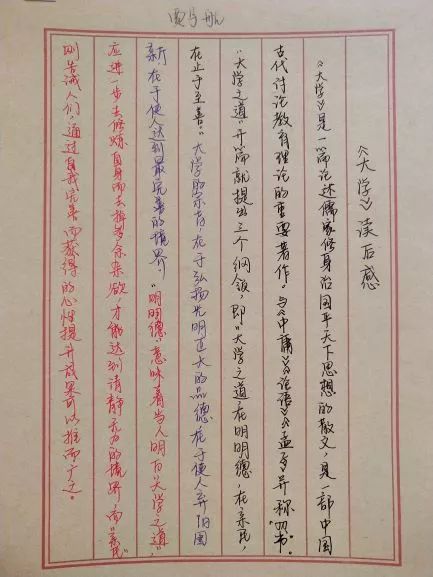 贾宇航
《大学》读后感
《大学》是一篇论述儒家修身治国平天下思想的散文，是一部中国
古代讨论教育理论的重要著作。与《中庸》《论语》《孟子》并称“四书”。
“大学之道”开篇就提出三个纲领，即“大学之道在明明德，在亲民，
在止于至善。”大学的宗旨，在于弘扬光明正大的品德，在于使人弃旧图
新，在于使人达到最完善的境界，“明明德”意味着当人明白“大学之道”，
应进一步去修炼自身而去掉多余杂欲，才能达到清静无为的境界，而“亲民”
则告诫人们，通过自我完善而获得的心性提升效果可以推而广之。